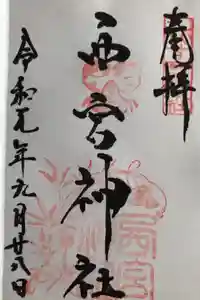 奉拝
西宮神社
令和元年九月廿八日
西宮